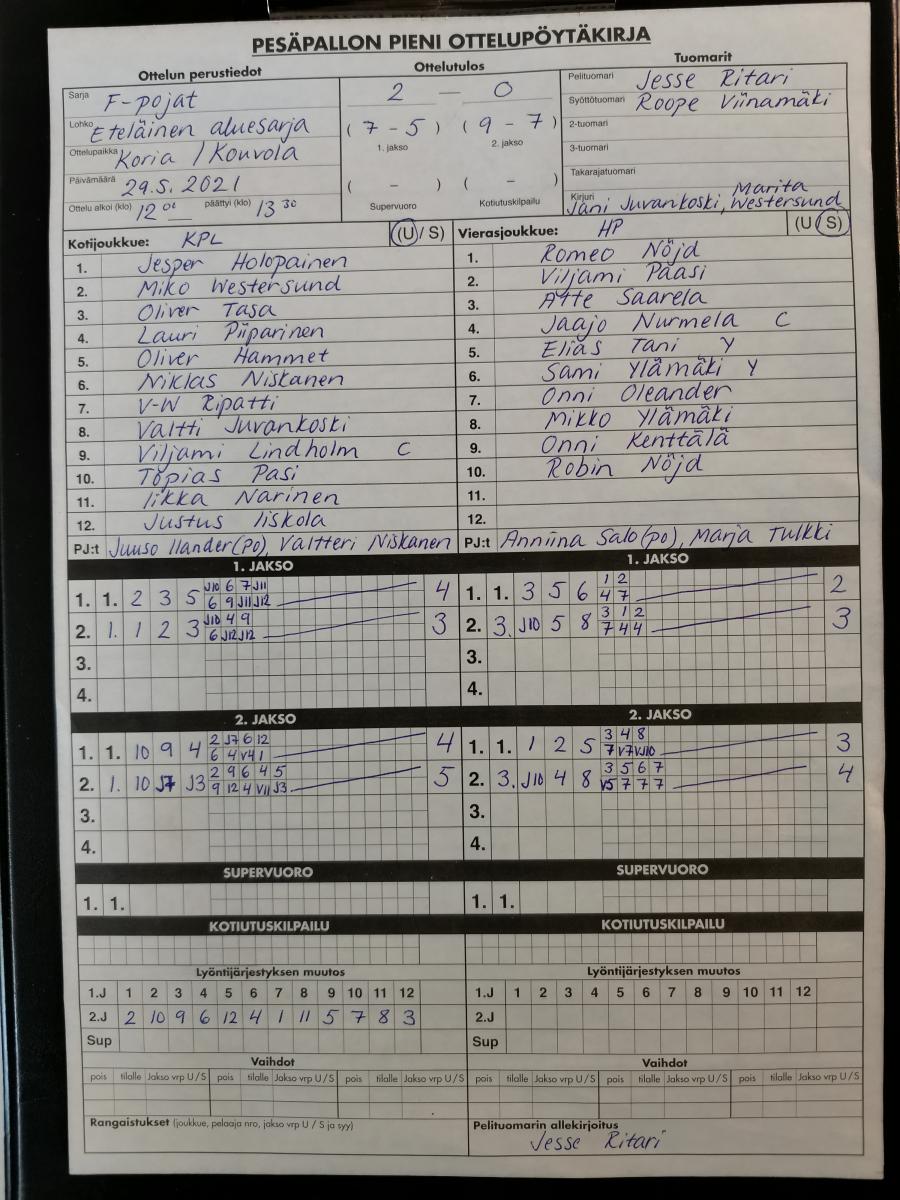 PESÄPALLON PIENI OTTELUPÖYTÄKIRJA
Ottelun perustiedot
Sarja F-pojat
Lohko Eteläinen aluesarja
Ottelupaikka Koria / Kouvola
Päivämäärä 29.5. 2021
Ottelu alkoi (klo) 12 00 päättyi (klo) 13 30
Ottelutulos
2 — 0
( 7 - 5 ) ( 9 - 7 )
1. jakso 2. jakso
( - ) ( - )
Supervuoro Kotiutuskilpailu
Tuomarit
Pelituomari Jesse Ritari
Syöttötuomari Roope Viinamäki
2-tuomari
3-tuomari
Takarajatuomari
Kirjuri Jani Juvankoski, Marita Westersund
Kotijoukkue: KPL (U / S)
1. Jesper Holopainen
2. Miko Westersund
3. Oliver Tasa
4. Lauri Piiparinen
5. Oliver Hammet
6. Niklas Niskanen
7. V-W Ripatti
8. Valtti Juvankoski
9. Viljami Lindholm C
10. Topias Pasi
11. Iikka Narinen
12. Justus Iiskola
PJ:t Juuso Ilander (po), Valtteri Niskanen
Vierasjoukkue: HP (U / S)
1. Romeo Nöjd
2. Viljami Paasi
3. Atte Saarela
4. Jaajo Nurmela C
5. Elias Tani Y
6. Sami Ylämäki Y
7. Onni Oleander
8. Mikko Ylämäki
9. Onni Kenttälä
10. Robin Nöjd
11.
12.
PJ:t Anniina Salo (po), Marja Tulkki
1. JAKSO
1. 1. 2 3 5 J10 6 7 J11 4
6 9 J11 J12
2. 1. 1 2 3 J10 4 9 3
6 J12 J12
3.
4.
1. JAKSO
1. 1. 3 5 6 1 2 2
4 7
2. 3. J10 5 8 3 1 2 3
7 4 4
3.
4.
2. JAKSO
1. 1. 10 9 4 2 J7 6 12 4
6 4 V4 1
2. 1. 10 J7 J3 2 9 6 4 5 5
9 12 4 V11 J3
3.
4.
2. JAKSO
1. 1. 1 2 5 3 4 8 3
7 V7 VJ10
2. 3. J10 4 8 3 5 6 7 4
V5 7 7 7
3.
4.
SUPERVUORO
1. 1.
SUPERVUORO
1. 1.
KOTIUTUSKILPAILU
KOTIUTUSKILPAILU
Lyöntijärjestyksen muutos
1.J 1 2 3 4 5 6 7 8 9 10 11 12
2.J 2 10 9 6 12 4 1 11 5 7 8 3
Sup
Lyöntijärjestyksen muutos
1.J 1 2 3 4 5 6 7 8 9 10 11 12
2.J
Sup
Vaihdot
pois tilalle Jakso vrp U / S pois tilalle Jakso vrp U / S pois tilalle Jakso vrp U / S
Vaihdot
pois tilalle Jakso vrp U / S pois tilalle Jakso vrp U / S pois tilalle Jakso vrp U / S
Rangaistukset (joukkue, pelaaja nro, jakso vrp U / S ja syy)
Pelituomarin allekirjoitus
Jesse Ritari